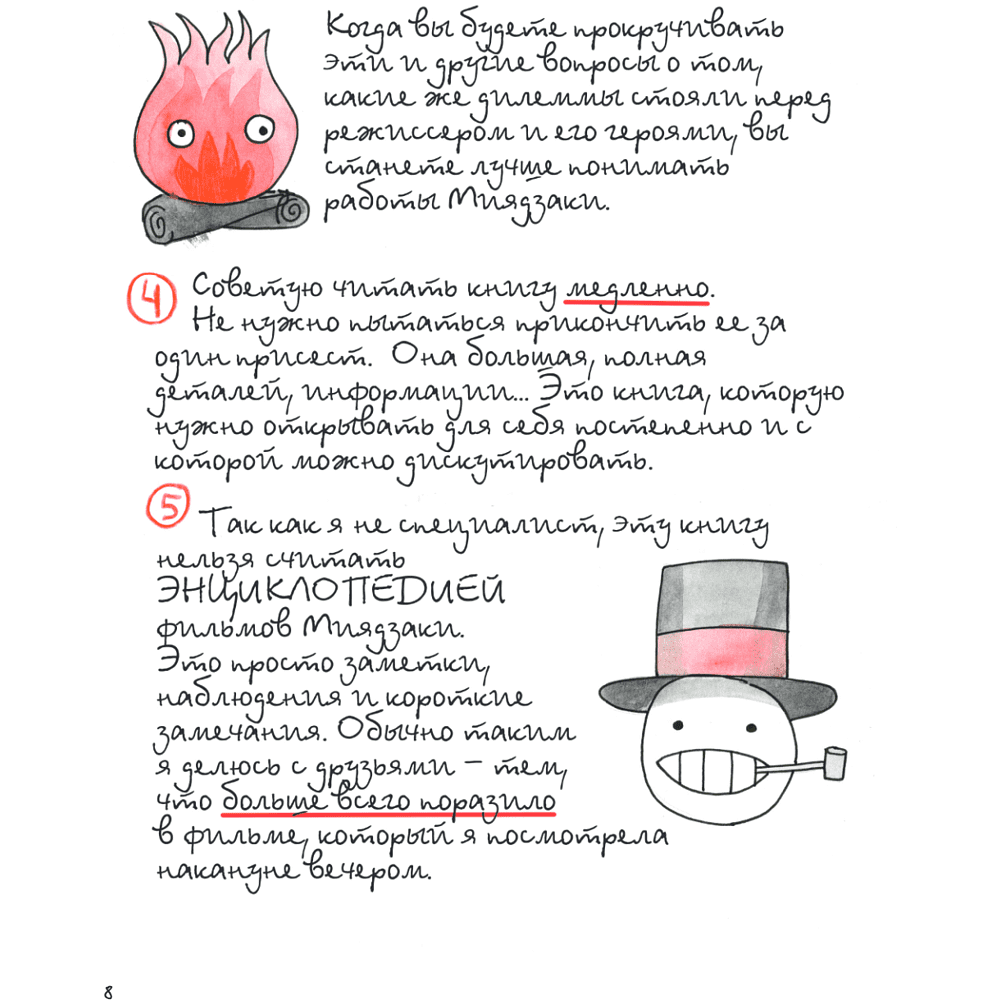 Когда вы будете прокручивать
эти и другие вопросы о том,
какие же дилеммы стояли перед
режиссером и его героями, вы
станете лучше понимать
работы Миядзаки.
4 Советую читать книгу медленно.
Не нужно пытаться прикончить ее за
один присест. Она большая, полная
деталей, информации... Это книга, которую
нужно открывать для себя постепенно и с
которой можно дискутировать.
5 Так как я не специалист, эту книгу
нельзя считать
ЭНЦИКЛОПЕДИЕЙ
фильмов Миядзаки.
Это просто заметки,
наблюдения и короткие
замечания. Обычно таким
я делюсь с друзьями – тем,
что больше всего поразило
в фильме, который я посмотрела
накануне вечером.
8